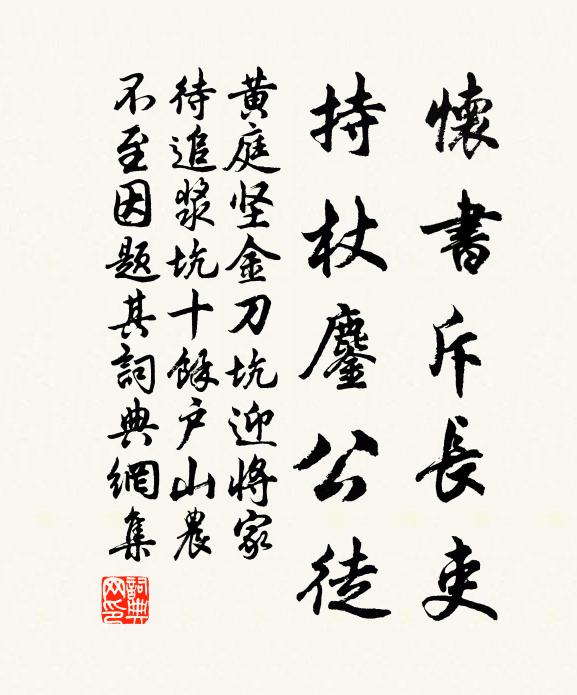 懷書斥長吏
持杖鏖公徒
黄庭坚金刀坑迎將家
待追漿坑十餘户山農
不至因題其詞典網集
詞典網印